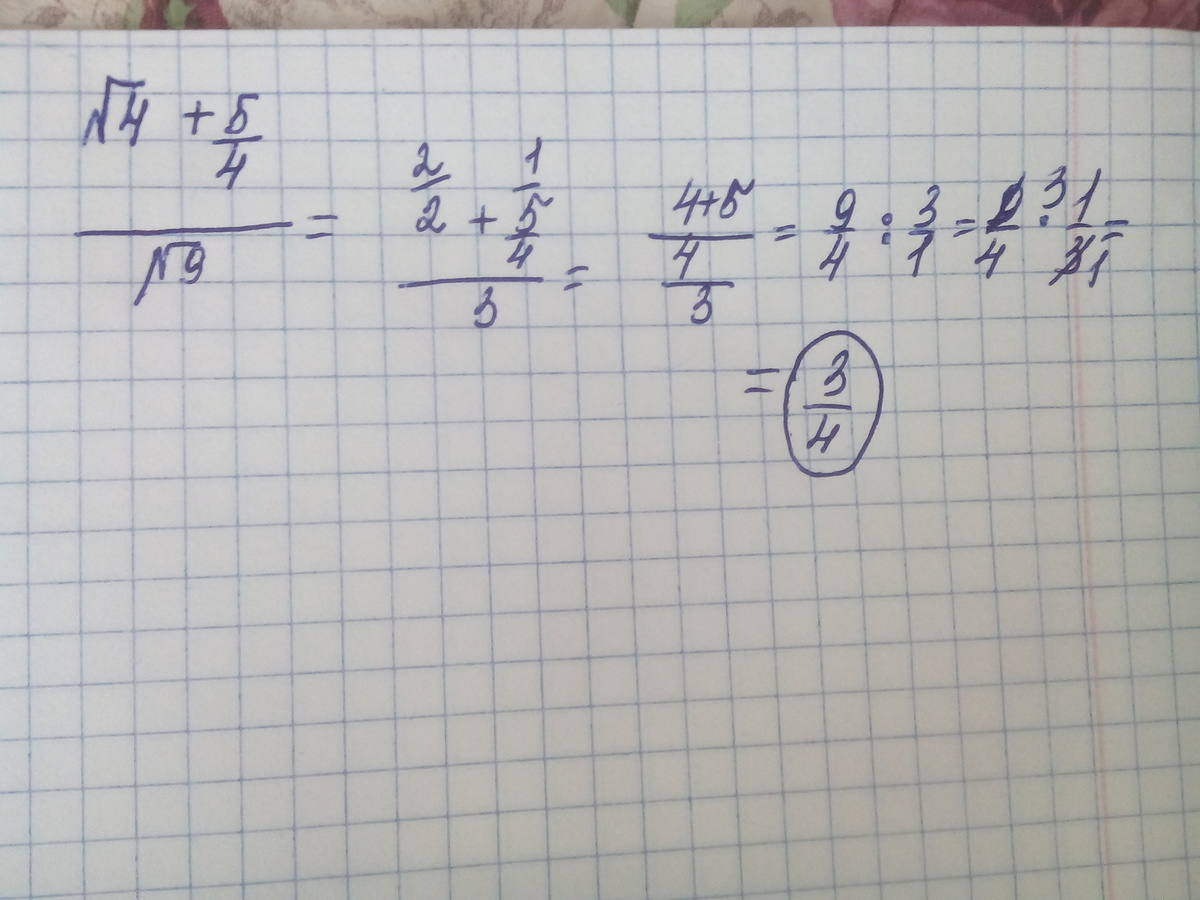 √4 + 5/4 / √9 = 2/2 + 1/5/4 / 3 = 4+5/4/3 = 9/4 : 3/1 = 9/4 3 : 1/3 1 =
= 3/4